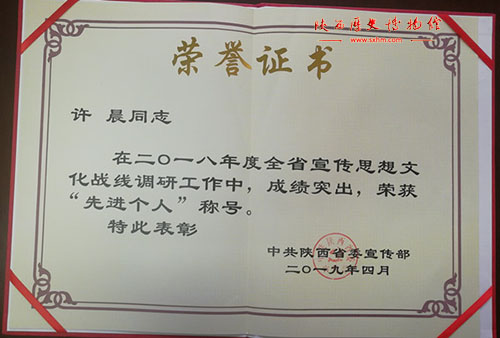 陕西历史博物馆
www.sxhm.com
荣誉证书
许 晨同志
在二〇一八年度全省宣传思想文
化战线调研工作中，成绩突出，荣获
“先进个人”称号。
特此表彰
中共陕西省委宣传部
二〇一九年四月